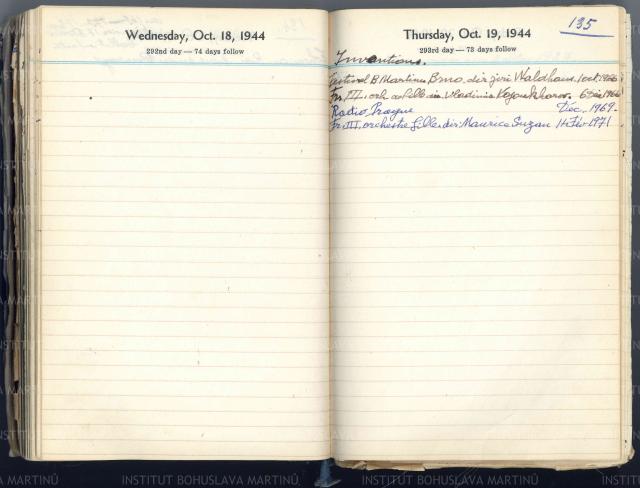 Wednesday, Oct. 18, 1944
292nd day — 74 days follow
Thursday, Oct. 19, 1944
293rd day — 73 days follow
135
Inventions.
Festival B Martinu Brno. dir jeri Waldhans. 1 oct. 1966
Fr. III. orch de Lille dir Vladimir Kojoukharov. 6 1966
Radio Prague Déc. 1969.
Fr. III. orchestre Lille. dir: Maurice Suzan 14 Fév 1971
INSTITUT BOHUSLAVA MARTINŮ
INSTITUT BOHUSLAVA MARTINŮ